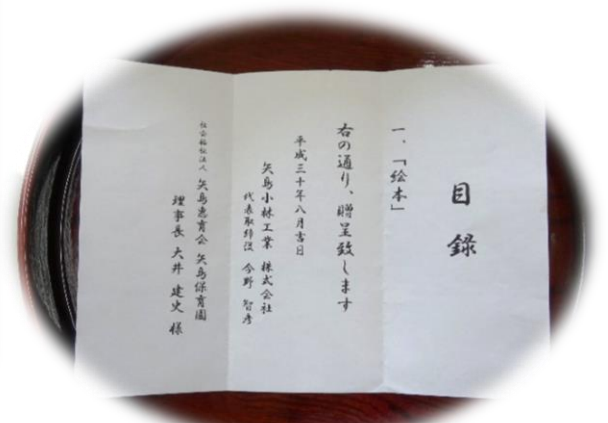 目録
一、「絵本」
右の通り、贈呈致します
平成三十年八月吉日
矢島小林工業 株式会社
代表取締役 今野 智彦
社会福祉法人 矢島恵育会 矢島保育園
理事長 大井 建史 様